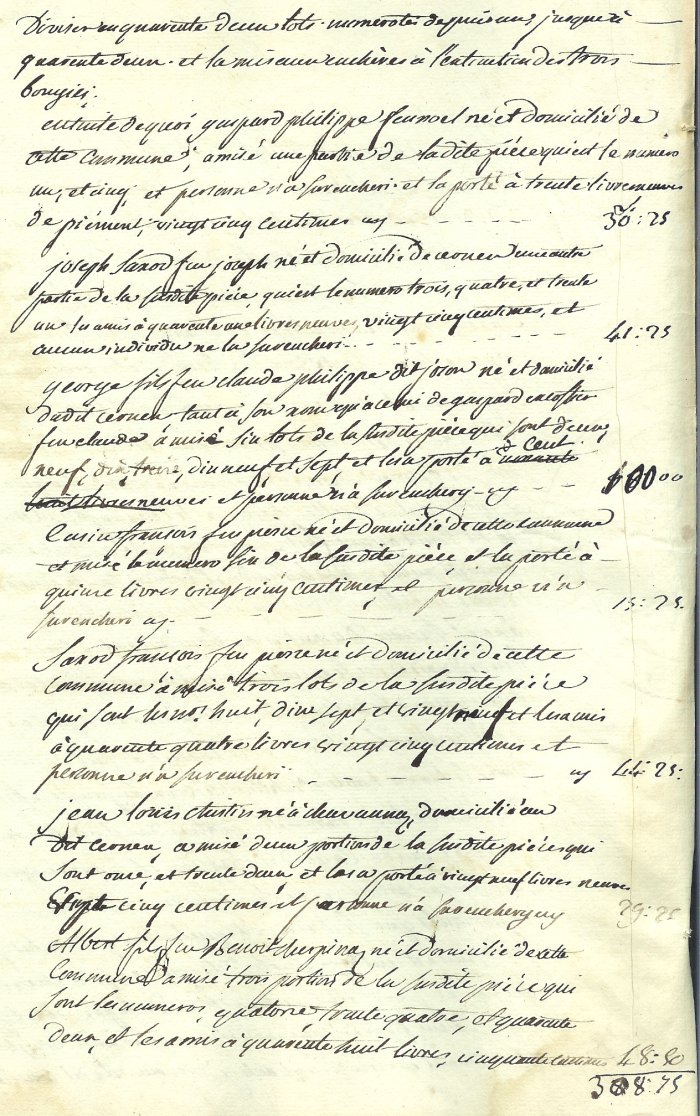 Diviser en quarente deux lots numerotés depuis un, jusque à
quarente deux. et la mis aux enchères à l'extinction des trois
bougies.
ensuite de quoi gaspard philippe feu noel né et domicilié de
cette commune, a misé une partie de la dite pièce qui est le numero
un, et cinq, et personne n'a surencheri. et la porté à trente livres neuves
de piémont, vingt cinq centimes 30:25
joseph Saxod feu joseph né et domicilié de cernex une autre
partie de la susdite pièce, qui est le numero trois, quatre, et trente
un les a mis à quarente une livres neuves, vingt cinq centimes, et
aucun individu ne la surencheri 41:25
george fils feu claude philippe dit joson né et domicilié
du dit cernex tant à son nom qu'à celui de gaspard
feu claude à misé six lots de la susdite pièce qui sont deux,
neuf, dix, treize, dix neuf et sept et les a porté à cent
livres neuves et personne n'a surenchery 100 00
françois feu pierre né et domicilié de cette commune
et misé le numero six de la susdite pièce et la porté à
quinze livres vingt cinq centimes, et personne n'a
surencheri 15:25
Saxod françois feu pierre né et domicilié de cette
commune à misé trois lots de la susdite pièce
qui sont les nos. huit, dix sept, et vingt neuf et les a mis
à quarente quatre livres vingt cinq centimes et
personne n'a surencheri 44:25
jean louis né à chavannaz, domicilié au
dit cernex, a misé deux portions de la susdite pièce qui
sont onze, et trente deux, et les a porté à vingt neuf livres neuves
vingt cinq centimes et personne n'a surenchery 29:25
Albert fils feu Benoit né et domicilié de cette
commune a misé trois portions de la susdite pièce qui
sont les numeros, quatorze trente quatre, et quarente
deux, et les a mis à quarente huit livres, cinquante centimes 48:50
308:75